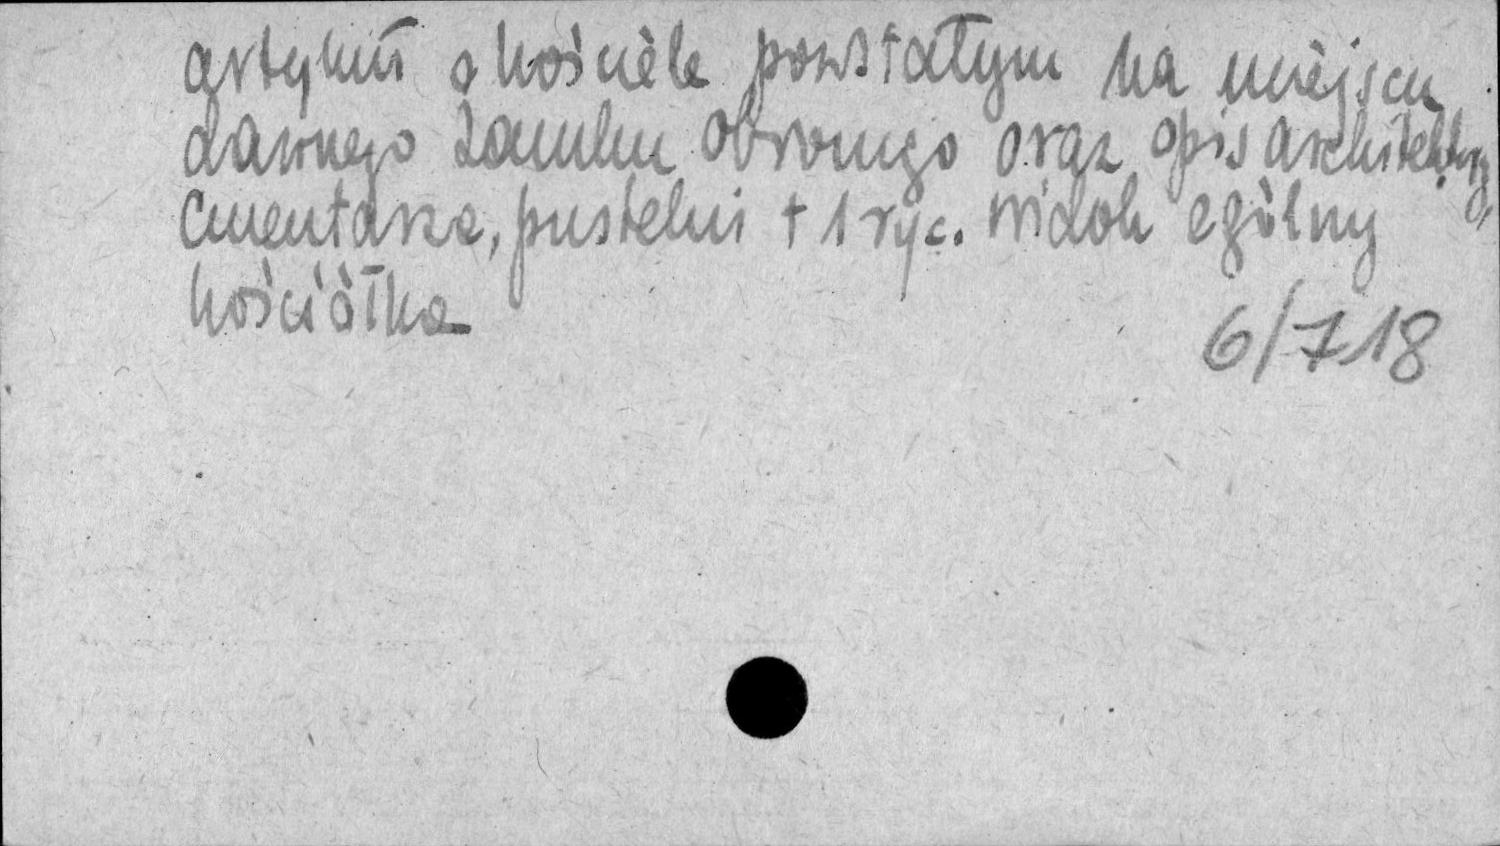 artykuł o kościele powstałym na miejscu
dawnego zamku obronnego oraz opis architektury,
cmentarza, pustelni + 1 ryc. widok ogólny
kościółka
6/718